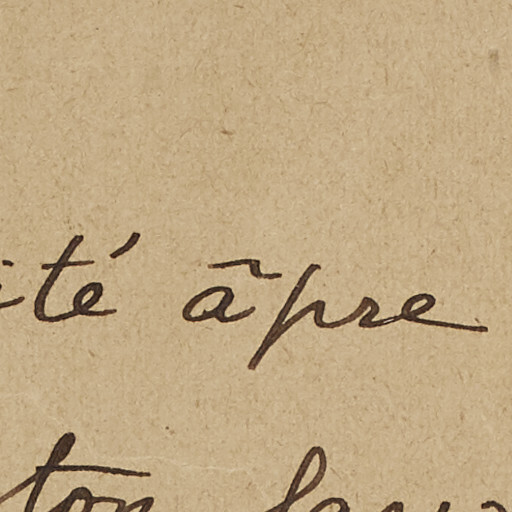 ité âpre
ton